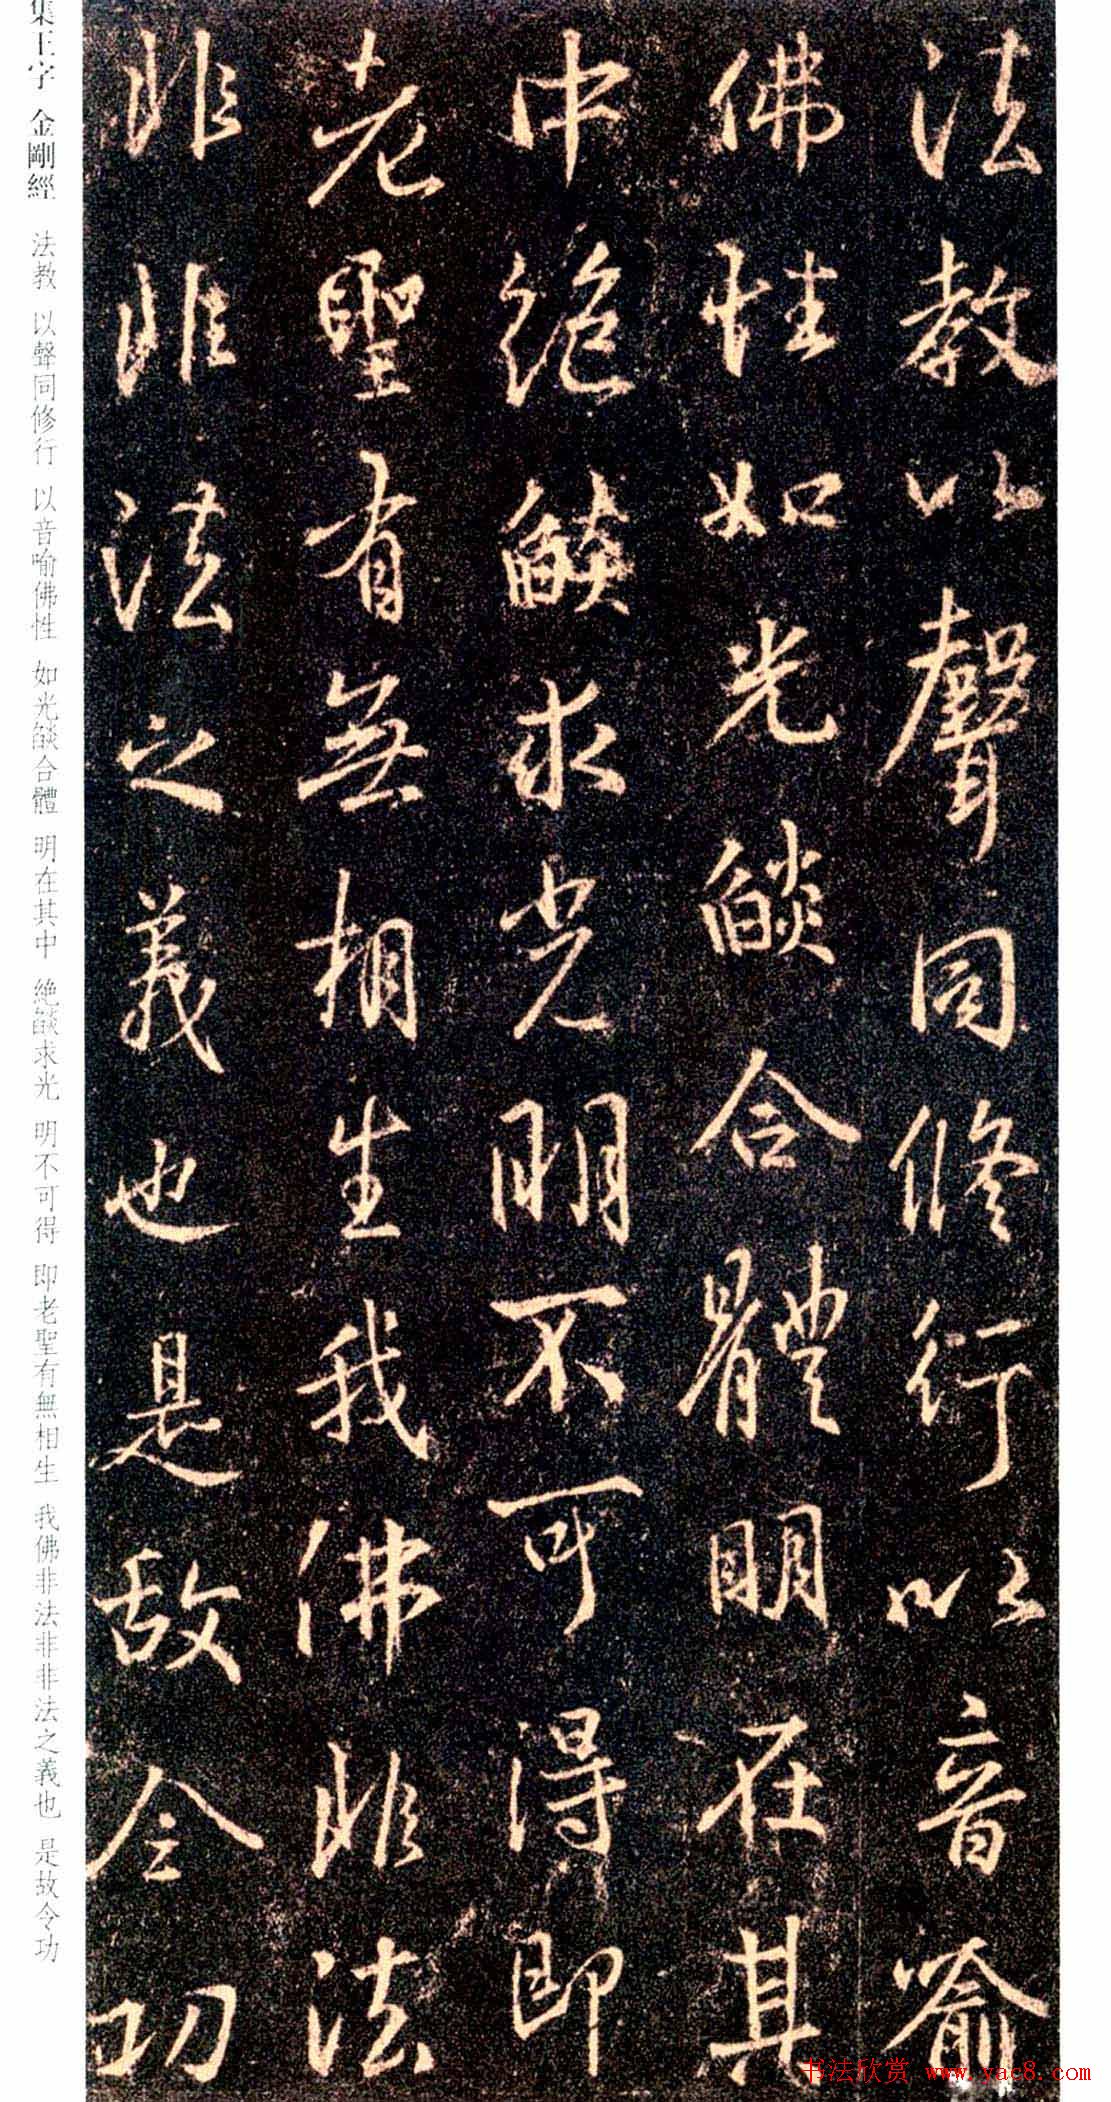 法教以聲同修行以音喻
佛性如光燄合體明在其
中絶燄求光明不可得即
老聖有無相生我佛非法
非非法之義也是故令功
集王字 金剛經 法教 以聲同修行 以音喻佛性 如光燄合體 明在其中 絶燄求光 明不可得 即老聖有無相生 我佛非法非非法之義也 是故令功
书法欣赏 www.yac8.com